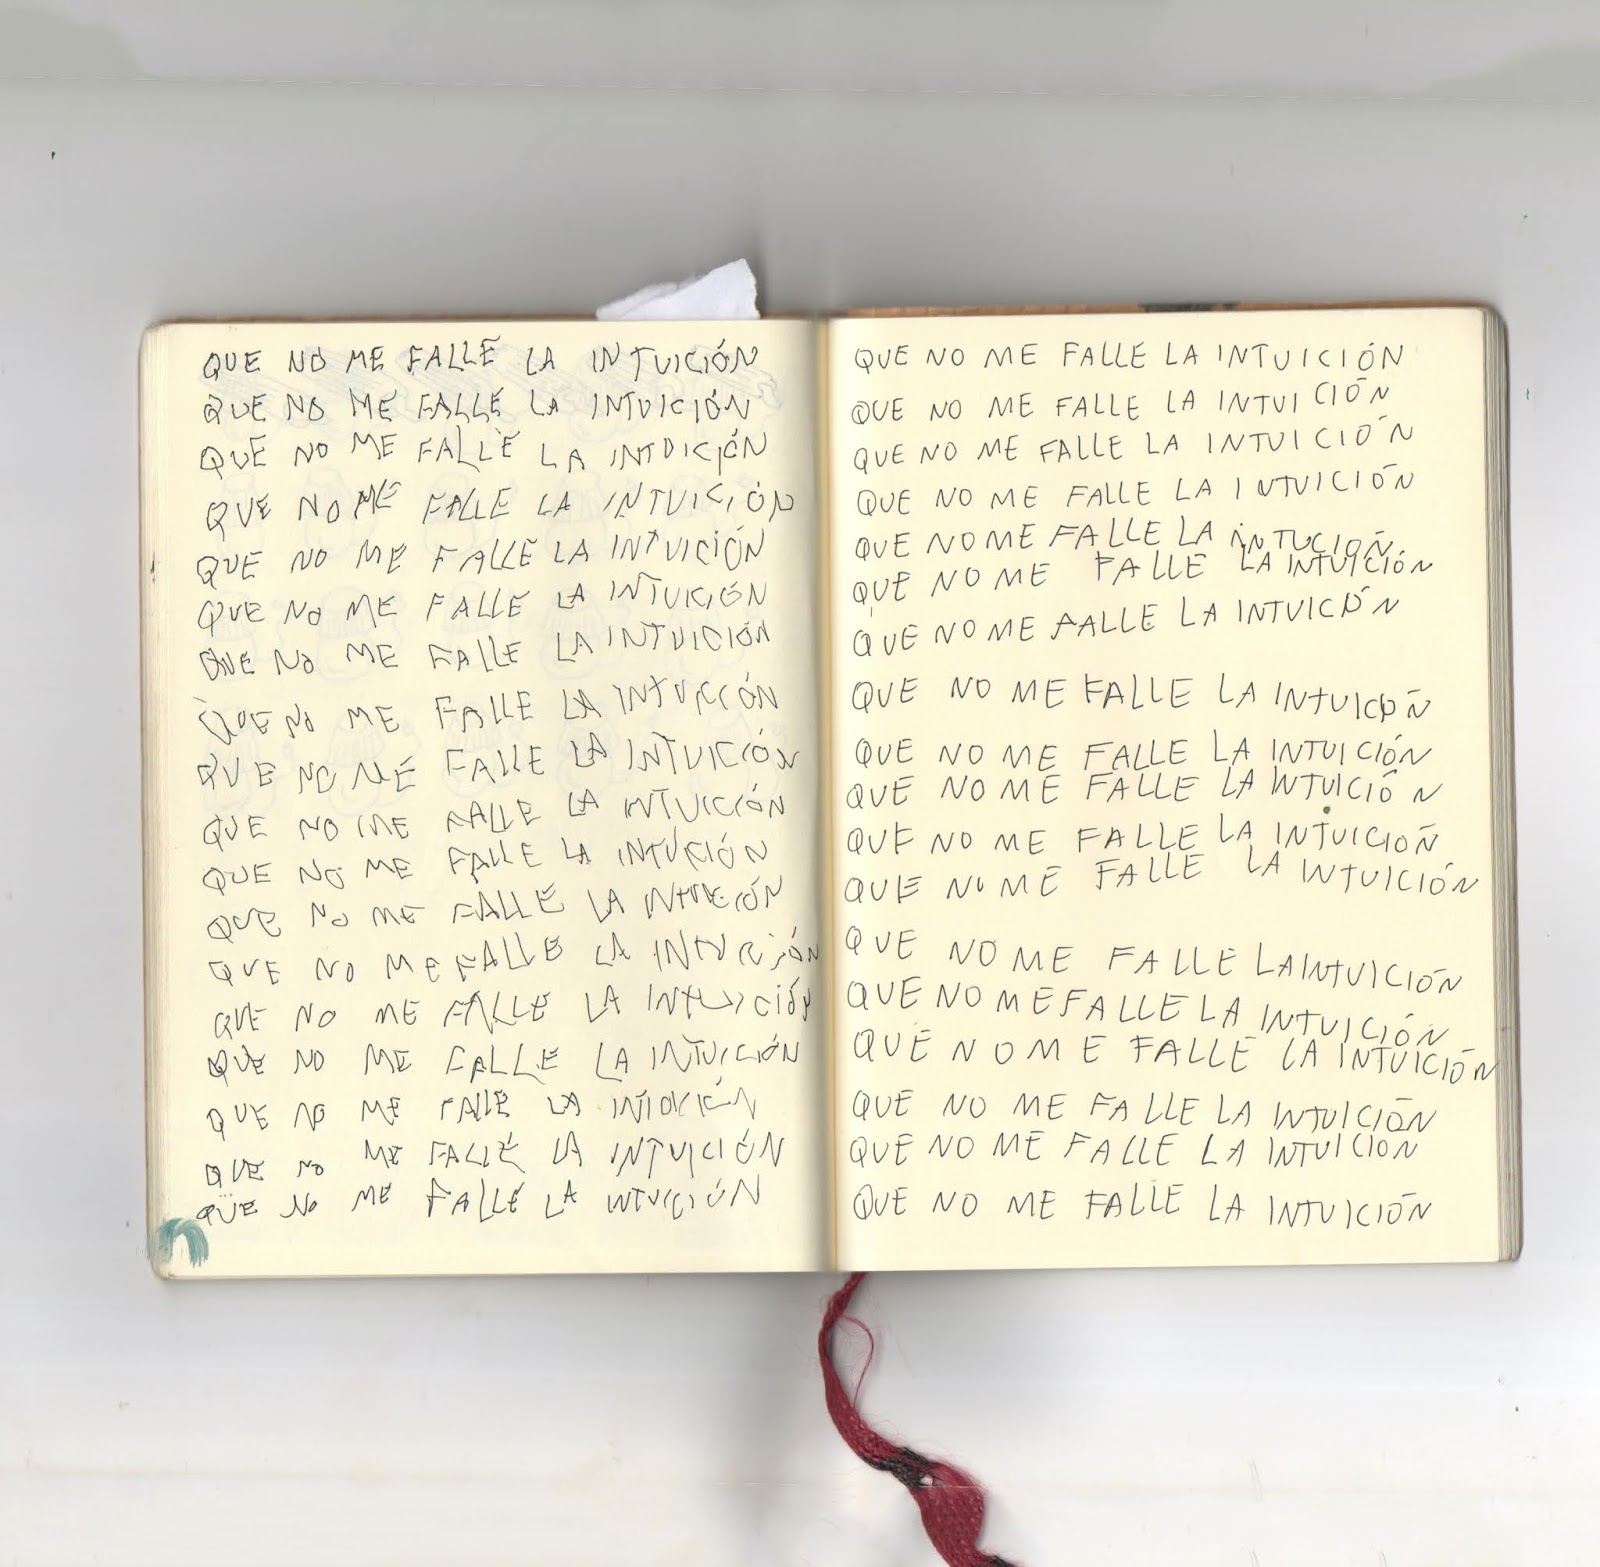 QUE NO ME FALLE LA INTUICIÓN
QUE NO ME FALLE LA INTUICIÓN
QUE NO ME FALLE LA INTUICIÓN
QUE NO ME FALLE LA INTUICIÓN
QUE NO ME FALLE LA INTUICIÓN
QUE NO ME FALLE LA INTUICIÓN
QUE NO ME FALLE LA INTUICIÓN
QUE NO ME FALLE LA INTUICIÓN
QUE NO ME FALLE LA INTUICIÓN
QUE NO ME FALLE LA INTUICIÓN
QUE NO ME FALLE LA INTUICIÓN
QUE NO ME FALLE LA INTUICIÓN
QUE NO ME FALLE LA INTUICIÓN
QUE NO ME FALLE LA INTUICIÓN
QUE NO ME FALLE LA INTUICIÓN
QUE NO ME FALLE LA INTUICIÓN
QUE NO ME FALLE LA INTUICIÓN
QUE NO ME FALLE LA INTUICIÓN
QUE NO ME FALLE LA INTUICIÓN
QUE NO ME FALLE LA INTUICIÓN
QUE NO ME FALLE LA INTUICIÓN
QUE NO ME FALLE LA INTUICIÓN
QUE NO ME FALLE LA INTUCIÓN
QUE NO ME FALLE LA INTUICIÓN
QUE NO ME FALLE LA INTUICIÓN
QUE NO ME FALLE LA INTUICIÓN
QUE NO ME FALLE LA INTUICIÓN
QUE NO ME FALLE LA INTUICIÓN
QUE NO ME FALLE LA INTUICIÓN
QUE NO ME FALLE LA INTUICIÓN
QUE NO ME FALLE LA INTUICIÓN
QUE NO ME FALLE LA INTUICIÓN
QUE NO ME FALLE LA INTUICIÓN
QUE NO ME FALLE LA INTUICIÓN
QUE NO ME FALLE LA INTUICION
QUE NO ME FALLE LA INTUICIÓN